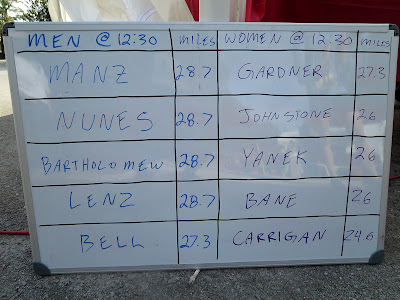 MEN @ 12:30 MILES WOMEN @ 12:30 MILES
MANZ 28.7 GARDNER 27.3
NUNES 28.7 JOHNSTONE 26
BARTHOLOMEW 28.7 YANEK 26
LENZ 28.7 BANE 26
BELL 27.3 CARRIGAN 24.6